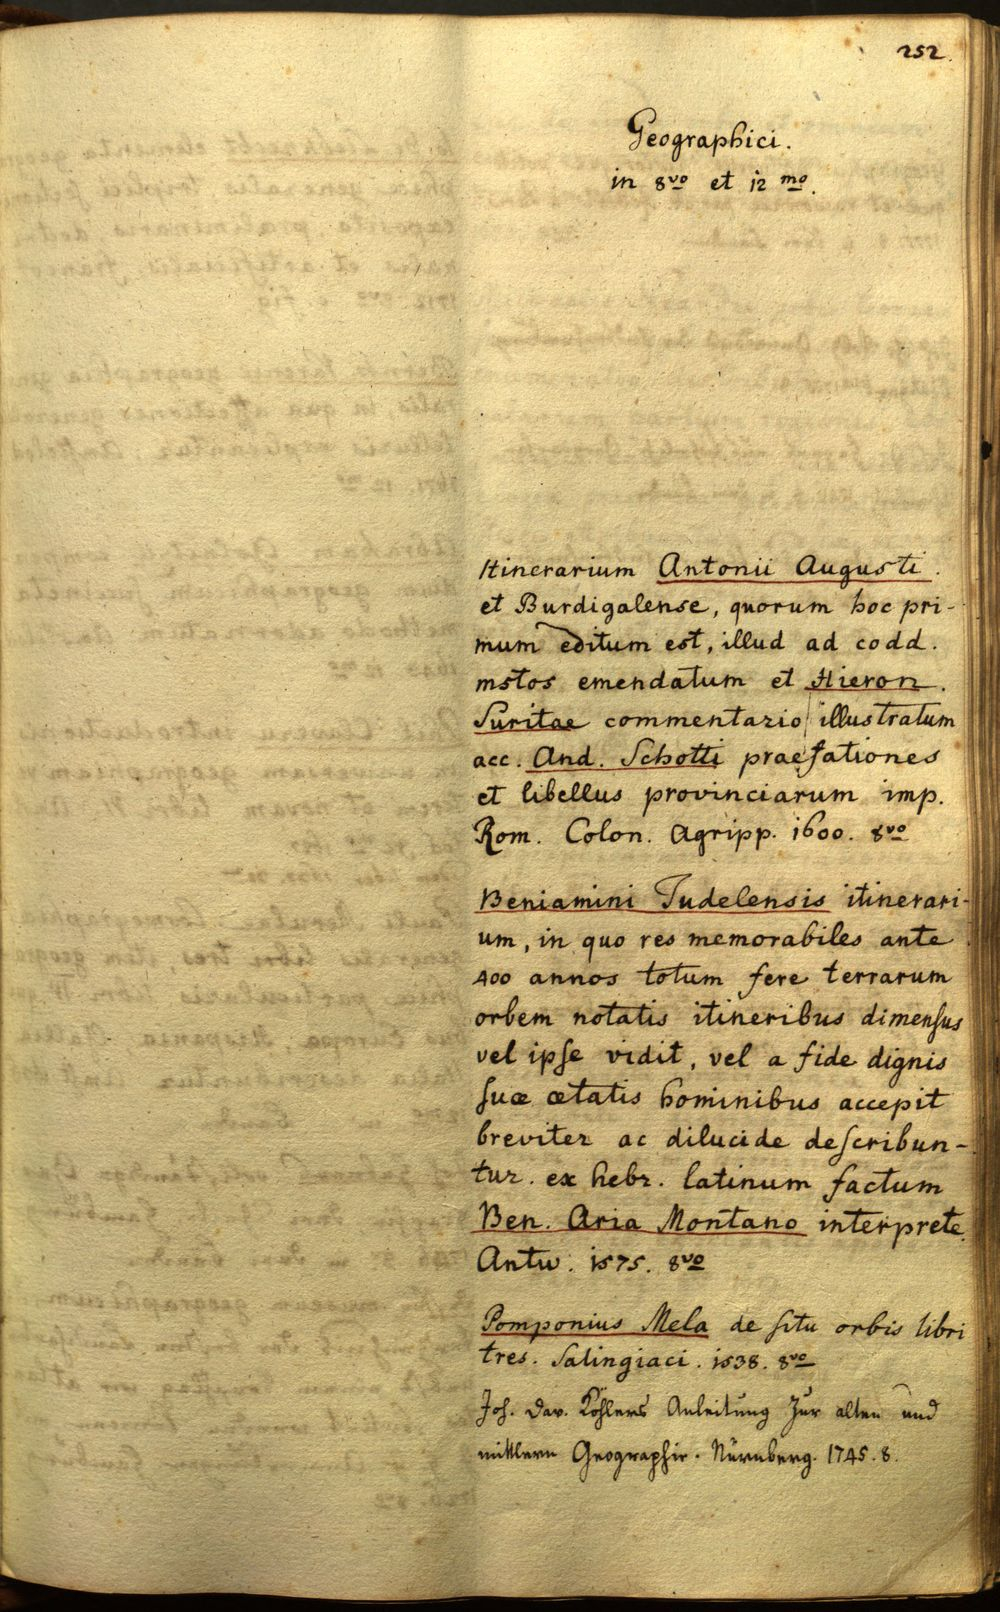 252.
Geographici.
in 8vo et 12 mo.
Itinerarium Antonii Augusti.
et Burdigalense, quorum hoc pri-
mum editum est, illud ad codd.
mstos emendatum et Hieron.
Suritae commentario illustratum
acc. And. Schotti praefationes
et libellus provinciarum imp.
Rom. Colon. Agripp. 1600. 8vo
Beniamini Tudelensis itinerari-
um, in quo res memorabiles ante
400 annos totum fere terrarum
orbem notatis itineribus dimenſus
vel ipſe vidit, vel a fide dignis
ſuæ ætatis hominibus accepit
breviter ac dilucide deſcribun-
tur. ex hebr. latinum factum
Ben. Aria Montano interprete.
Antw. 1575. 8vo
Pomponius Mela de ſitu orbis libri
tres. Salingiaci. 1538. 8vo
Joh. Dav. Köhlers Anleitung zur alten und
mittlern Geographie. Nürnberg. 1745. 8.